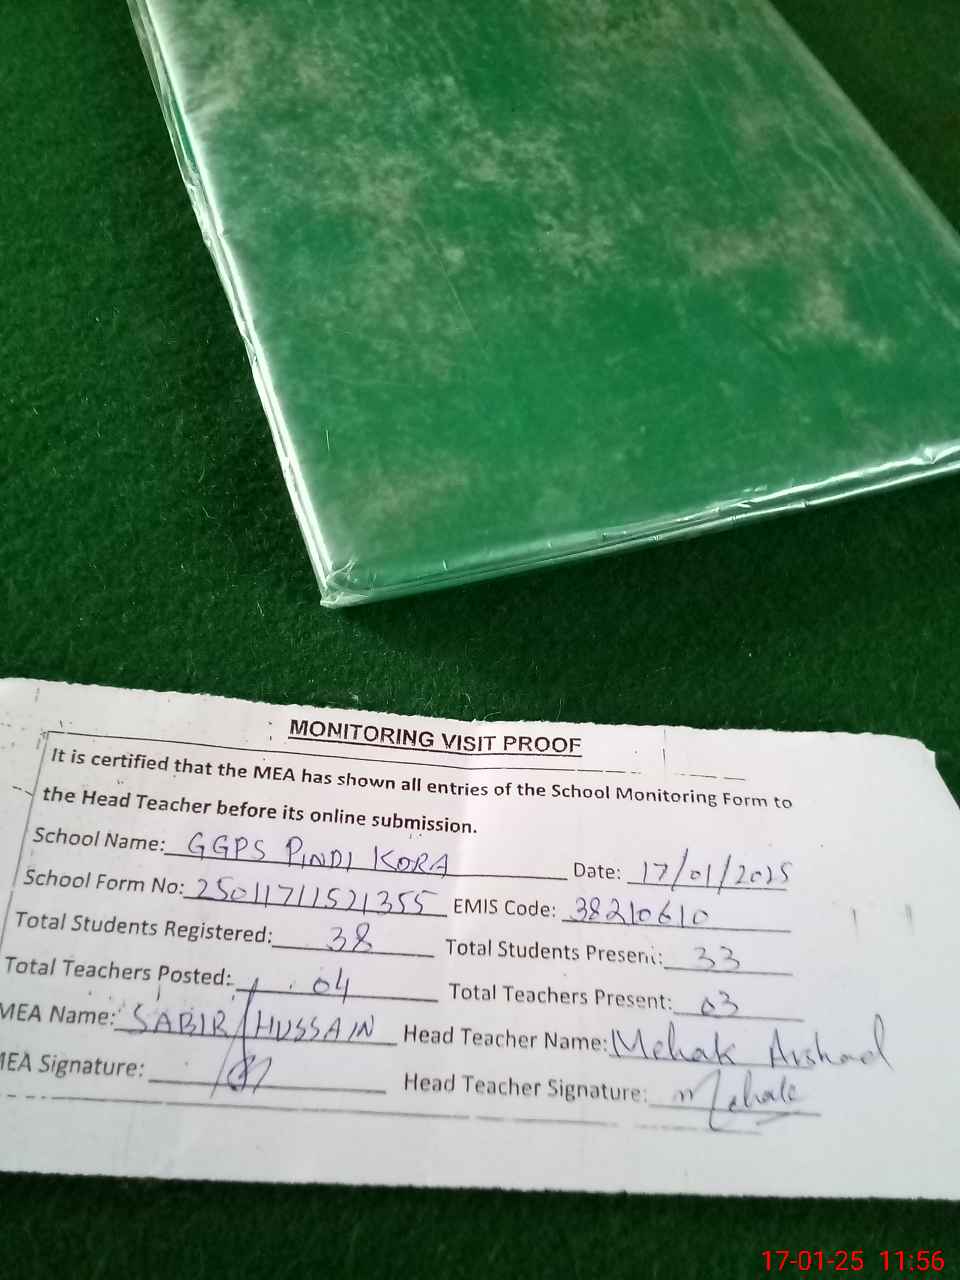 MONITORING VISIT PROOF
It is certified that the MEA has shown all entries of the School Monitoring Form to
the Head Teacher before its online submission.
School Name: GGPS PINDI KORA Date: 17/01/2025
School Form No: 25011711521355 EMIS Code: 38210610
Total Students Registered: 38 Total Students Present: 33
Total Teachers Posted: 04 Total Teachers Present: 03
MEA Name: SABIR HUSSAIN Head Teacher Name: Mehak Arshad
MEA Signature: Head Teacher Signature: Mehak
17-01-25 11:56